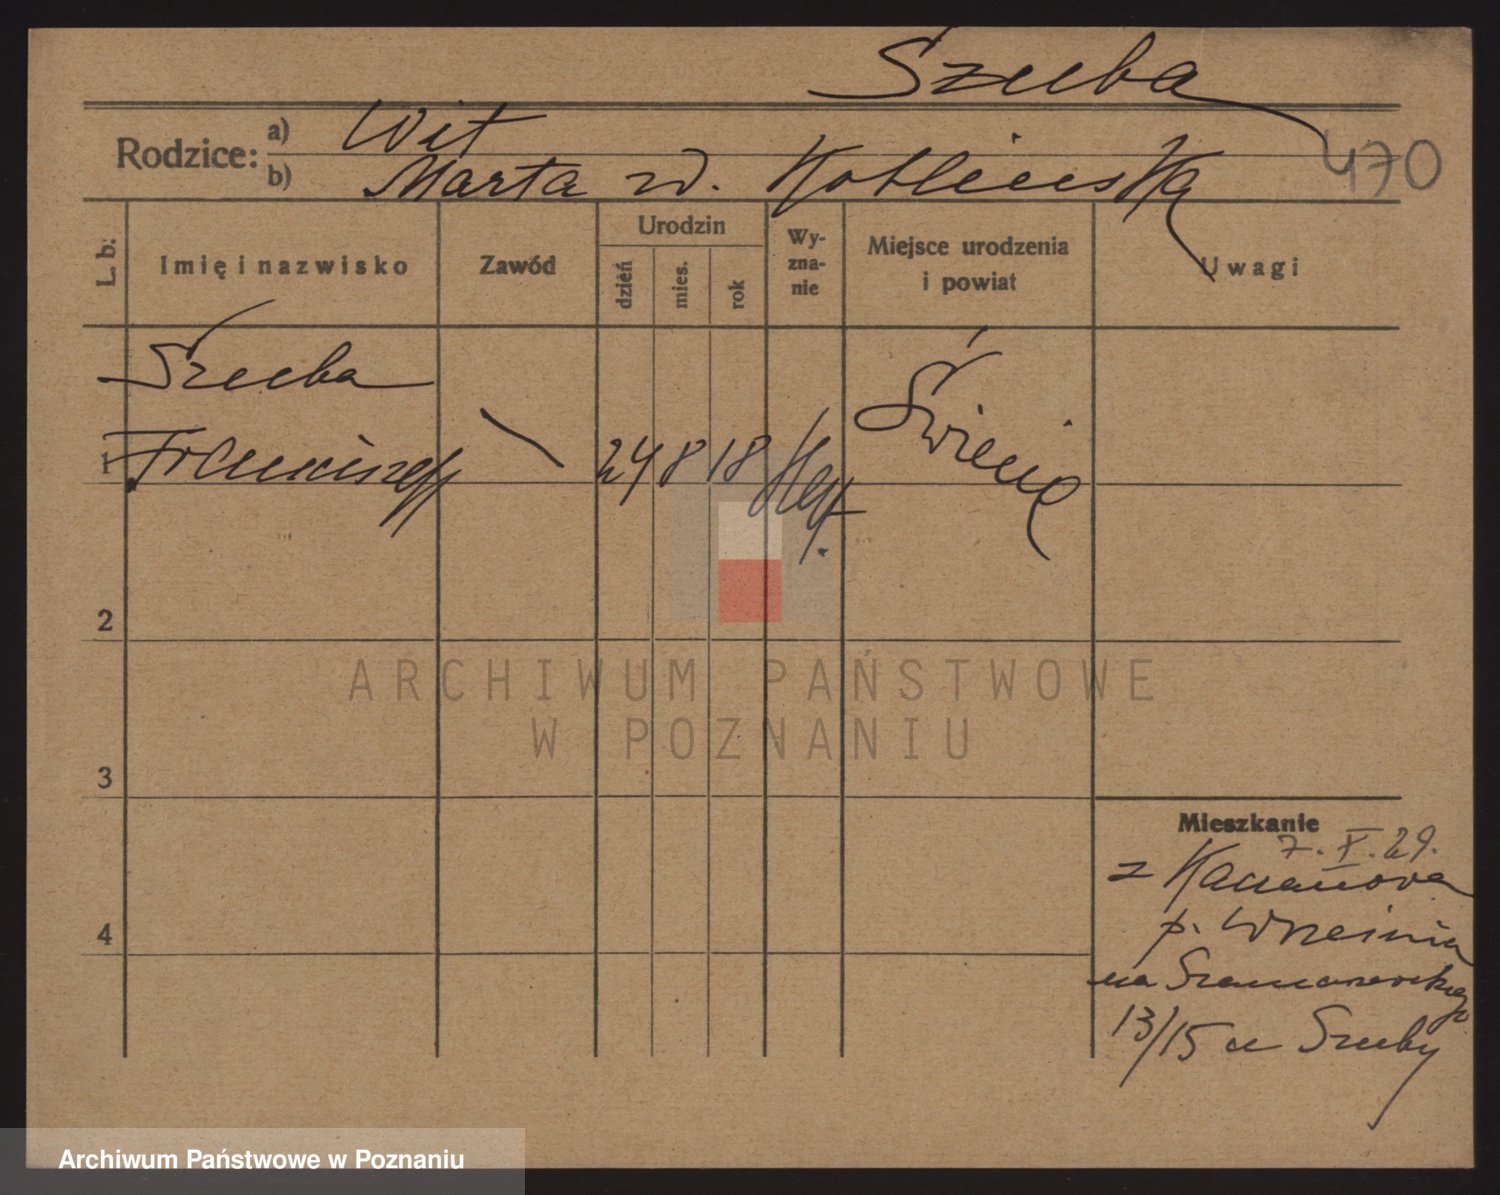 Szuba
Rodzice: a) Wit
b) Marta z d. Koblińska
470
L. b.
Imię i nazwisko
Zawód
Urodzin
dzień
mies.
rok
Wy-
zna-
nie
Miejsce urodzenia
i powiat
Uwagi
Szuba
1 Franciszek
24 8 18
Świecie
2
3
4
Mieszkanie
7. X. 29.
z Kaczanowa
p. Września
na Szamarzewskiego
13/15 u Szuby
ARCHIWUM PAŃSTWOWE
W POZNANIU
Archiwum Państwowe w Poznaniu